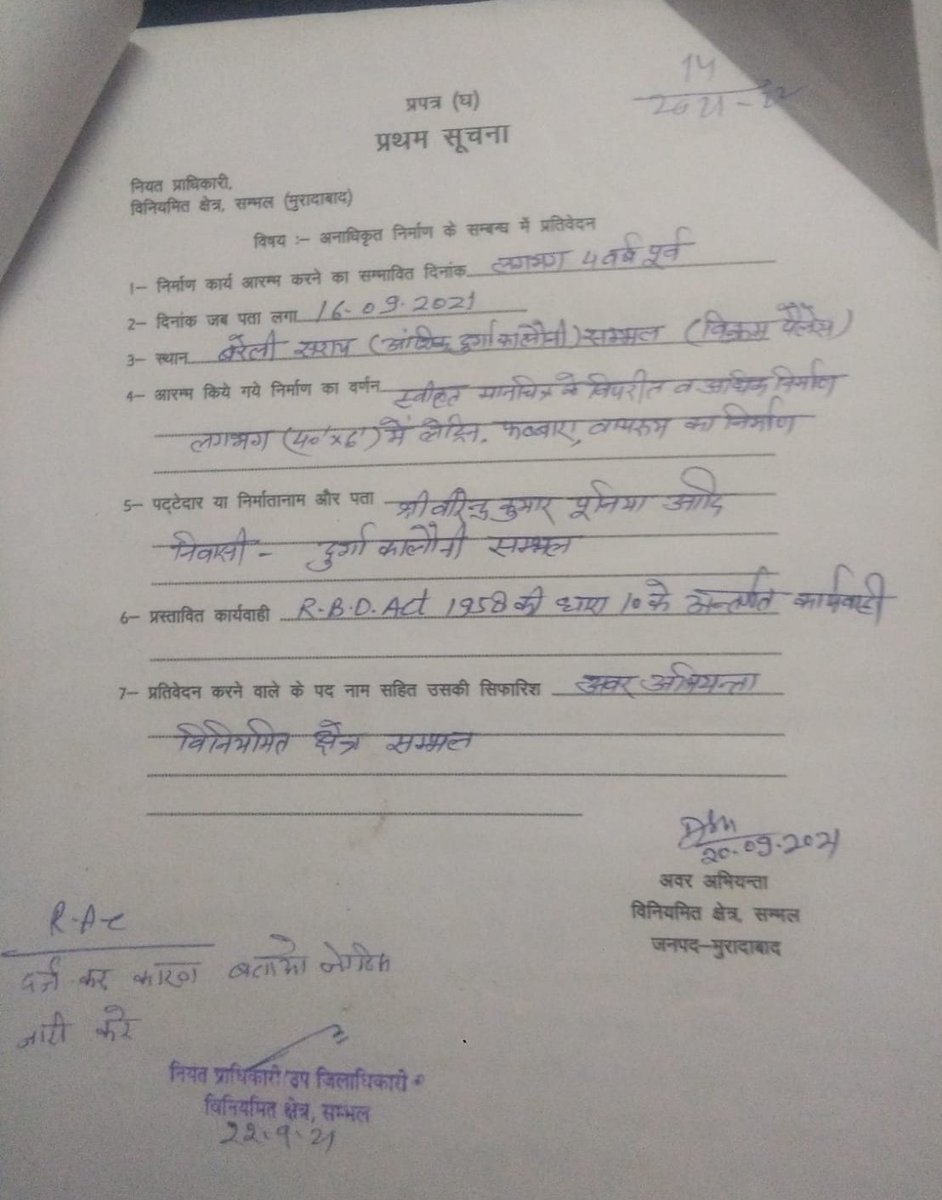 14
2021-22
प्रपत्र (घ)
प्रथम सूचना
नियत प्राधिकारी,
विनियमित क्षेत्र, सम्भल (मुरादाबाद)
विषय :- अनाधिकृत निर्माण के सम्बन्ध में प्रतिवेदन
1- निर्माण कार्य आरम्भ करने का सम्भावित दिनांक लगभग 4 वर्ष पूर्व
2- दिनांक जब पता लगा 16.09.2021
3- स्थान बरेली सराय (आंशिक दुर्गा कालौनी) सम्भल (विक्रम पैलेस)
4- आरम्भ किये गये निर्माण का वर्णन स्वीकृत मानचित्र के विपरीत व अधिक निर्माण
लगभग (40'x6') में लैट्रिन, फव्वारा, वाथरूम का निर्माण
5- पट्टेदार या निर्मातानाम और पता श्री वीरेन्द्र कुमार पूनिया आदि
निवासी - दुर्गा कालौनी सम्भल
6- प्रस्तावित कार्यवाही R.B.O. Act 1958 की धारा 10 के अन्तर्गत कार्यवाही
7- प्रतिवेदन करने वाले के पद नाम सहित उसकी सिफारिश अवर अभियन्ता
विनियमित क्षेत्र सम्भल
20.09.2021
अवर अभियन्ता
विनियमित क्षेत्र, सम्भल
जनपद-मुरादाबाद
दर्ज कर कारण बताओ नोटिस
जारी करे
नियत प्राधिकारी/उप जिलाधिकारी
विनियमित क्षेत्र, सम्भल
22.9.21